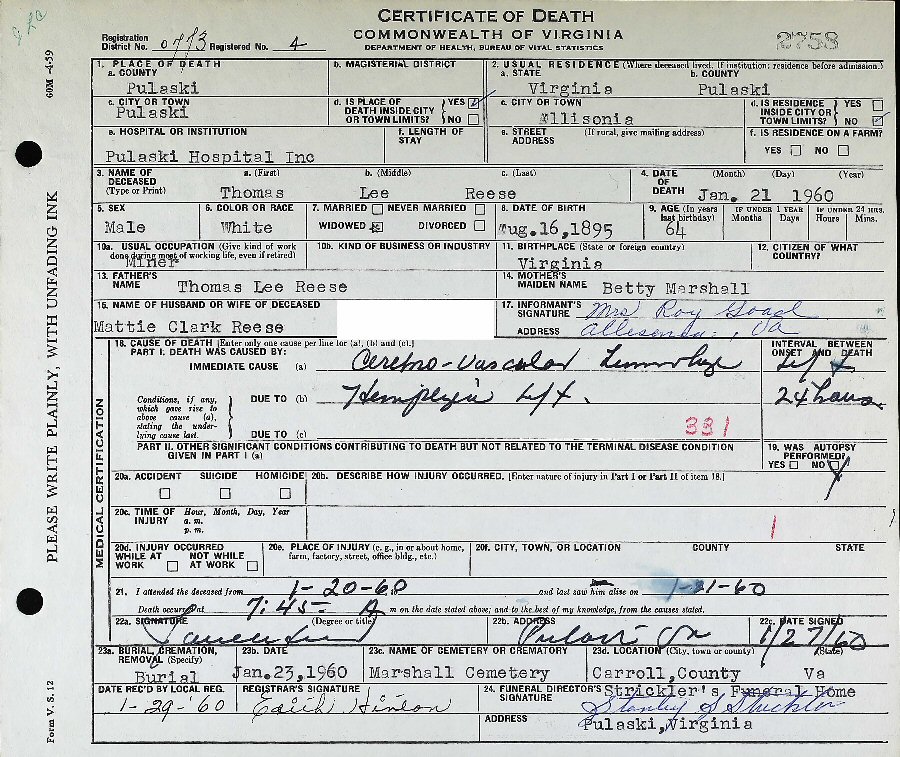 CERTIFICATE OF DEATH
COMMONWEALTH OF VIRGINIA
DEPARTMENT OF HEALTH, BUREAU OF VITAL STATISTICS
Registration District No. 0773 Registered No. 4
2758
60M-4-59
PLEASE WRITE PLAINLY, WITH UNFADING INK
Form V. S. 12
1. PLACE OF DEATH
a. COUNTY
Pulaski
b. MAGISTERIAL DISTRICT
2. USUAL RESIDENCE (Where deceased lived. If institution: residence before admission.)
a. STATE
Virginia
b. COUNTY
Pulaski
c. CITY OR TOWN
Pulaski
d. IS PLACE OF DEATH INSIDE CITY OR TOWN LIMITS? YES NO
c. CITY OR TOWN
Allisonia
d. IS RESIDENCE INSIDE CITY OR TOWN LIMITS? YES NO
e. HOSPITAL OR INSTITUTION
Pulaski Hospital Inc
f. LENGTH OF STAY
e. STREET ADDRESS (If rural, give mailing address)
f. IS RESIDENCE ON A FARM?
YES NO
3. NAME OF DECEASED (Type or Print)
a. (First) b. (Middle) c. (Last)
Thomas Lee Reese
4. DATE OF DEATH (Month) (Day) (Year)
Jan. 21 1960
5. SEX
Male
6. COLOR OR RACE
White
7. MARRIED NEVER MARRIED
WIDOWED DIVORCED
8. DATE OF BIRTH
Aug.16,1895
9. AGE (In years last birthday)
64
IF UNDER 1 YEAR
Months Days
IF UNDER 24 HRS.
Hours Mins.
10a. USUAL OCCUPATION (Give kind of work done during most of working life, even if retired)
Miner
10b. KIND OF BUSINESS OR INDUSTRY
11. BIRTHPLACE (State or foreign country)
Virginia
12. CITIZEN OF WHAT COUNTRY?
13. FATHER'S NAME
Thomas Lee Reese
14. MOTHER'S MAIDEN NAME
Betty Marshall
15. NAME OF HUSBAND OR WIFE OF DECEASED
Mattie Clark Reese
17. INFORMANT'S SIGNATURE Mrs Roy Goad
ADDRESS Allisonia, Va
MEDICAL CERTIFICATION
18. CAUSE OF DEATH [Enter only one cause per line for (a), (b) and (c).]
PART I. DEATH WAS CAUSED BY:
IMMEDIATE CAUSE (a) Cerebro-Vascular
INTERVAL BETWEEN ONSET AND DEATH
Conditions, if any, which gave rise to above cause (a), stating the underlying cause last.
DUE TO (b)
24 hours
DUE TO (c)
331
PART II. OTHER SIGNIFICANT CONDITIONS CONTRIBUTING TO DEATH BUT NOT RELATED TO THE TERMINAL DISEASE CONDITION GIVEN IN PART I (a)
19. WAS AUTOPSY PERFORMED?
YES NO
20a. ACCIDENT SUICIDE HOMICIDE
20b. DESCRIBE HOW INJURY OCCURRED. (Enter nature of injury in Part I or Part II of item 18.)
20c. TIME OF INJURY Hour, Month, Day, Year
a. m.
p. m.
20d. INJURY OCCURRED
WHILE AT WORK NOT WHILE AT WORK
20e. PLACE OF INJURY (e. g., in or about home, farm, factory, street, office bldg., etc.)
20f. CITY, TOWN, OR LOCATION COUNTY STATE
21. I attended the deceased from 1-20-60 and last saw him alive on 1-21-60
Death occurred at 7:45 A m on the date stated above; and to the best of my knowledge, from the causes stated.
22a. SIGNATURE (Degree or title)
22b. ADDRESS
Pulaski Va
22c. DATE SIGNED
1/27/60
23a. BURIAL, CREMATION, REMOVAL (Specify)
Burial
23b. DATE
Jan.23,1960
23c. NAME OF CEMETERY OR CREMATORY
Marshall Cemetery
23d. LOCATION (City, town or county) (State)
Carroll,County Va
DATE REC'D BY LOCAL REG.
1-29-60
REGISTRAR'S SIGNATURE
Edith Hinson
24. FUNERAL DIRECTOR'S SIGNATURE
Strickler's Funeral Home
Stanley S Strickler
ADDRESS
Pulaski,Virginia